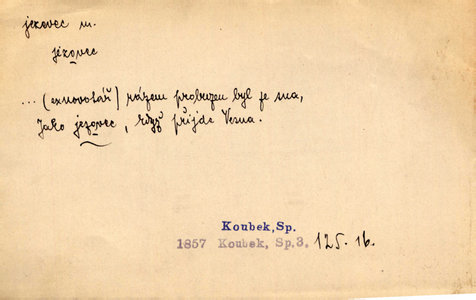 jezovec m.
jezovec
... (exnovotář) rázem probuzen byl ze sna,
Jako jezovec, když přijde Vesna.
Koubek,Sp.
1857 Koubek, Sp.3. 125. 16.